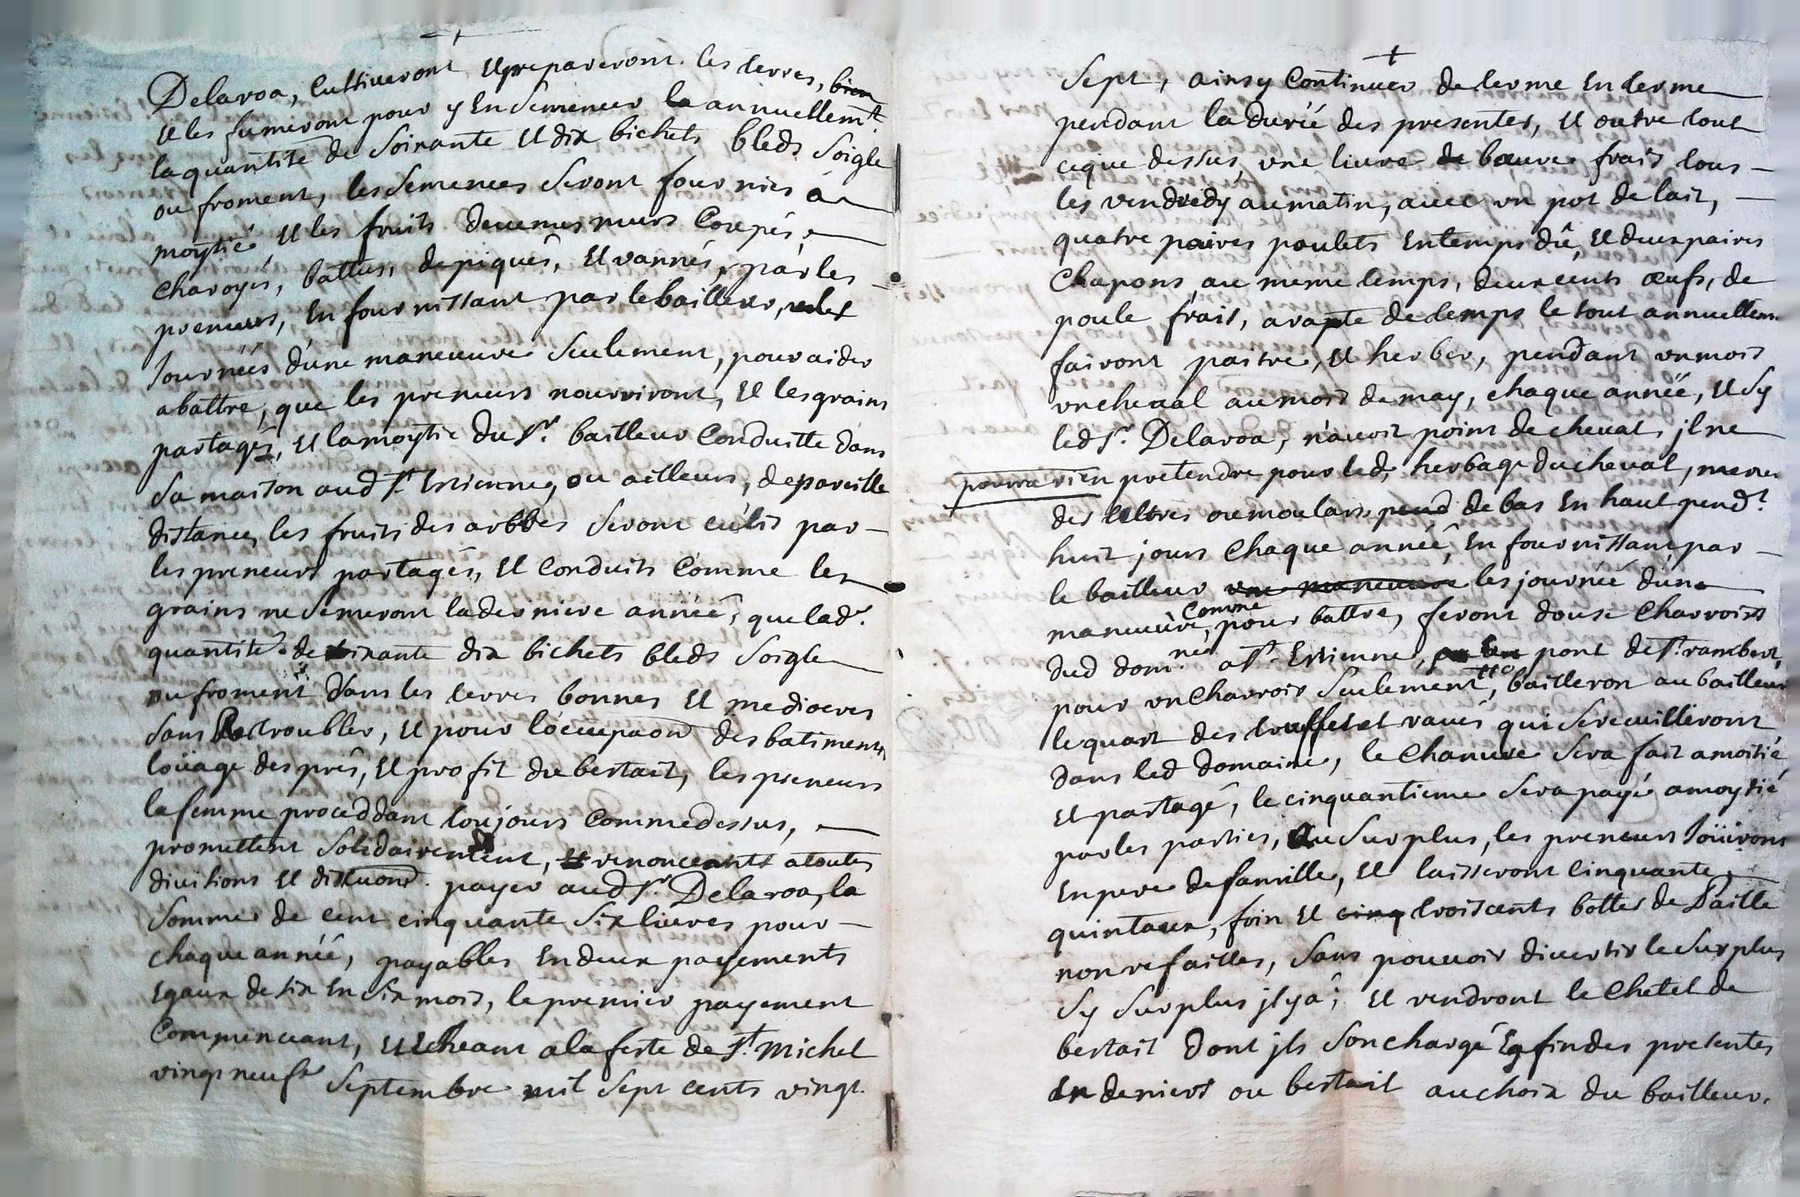 Delaroa, Cultiveront Et prepareront les terres, bien
Et les fumeront pour y Ensemencer annuellemt.
la quantité de Soixante Et dix bichets bleds Soigle
ou froment, les Semences Seront fournies à
moytié Et les fruits devenus murs Coupés,
Charoyés, battus, depiqués, Et vannés, par les
preneurs, En fournissant par le bailleur, les
Journéés d'une maneuvre Seulement, pour aider
a battre, que les preneurs nourriront, Et les grains
partagés, Et la moytié du Sr. bailleur Conduitte dans
Sa maison aud St. Estienne, ou ailleurs, de pareille
distance, les fruits des arbbes Seront cuilis par
les preneurs partagés, Et Conduits Comme les
grains ne Semeront la derniere année, que lad.
quantité de Soixante dix bichets bleds Soigle
ou froment dans les terres bonnes Et mediocres
Sans les troubler, Et pour l'occupaon des batiments,
loüage des prés, Et profit du bestail, les preneurs
la femme proceddant toujours Comme dessus,
promettent Solidairement, renonceants a toutes
divisions Et discuons. payer aud Sr. Delaroa, la
Somme de cent cinquante Six livres pour
chaque année, payables En deux payements
Egaux de Six En Six mois, le premier payement
Commenceant, Et Echeant a la feste de St. Michel
vingt neufe Septembre mil Sept cents vingt
Sept, ainsy Continuer de terme En terme
pendant la duréé des presentes, Et outre tout
ceque dessus, une livre de beurre frais tous
les vendredy au matin, avec un pot de lait,
quatre paires poulets En temps dû, Et deux paires
Chapons au meme temps, deux cents œufs, de
poule frais, a rapte de temps le tout annuellemt
fairont paitre, Et herber, pendant un mois
un cheval au mois de may, chaque année, Et Sy
led Sr. Delaroa, n'avoit point de cheval, il ne
pourra rien pretendre pour led. herbage du cheval, mener
des lettres ou moulars pend de bas En haut pendt
huit jours Chaque année, En fournissant par
le bailleur une maneuvre les journéé dune
maneuvre, Comme pour battre, feront douse Charrois
dud domne. a St. Estienne, ou au pont de St. rambert,
pour un Charrois Seulement, bailleron au bailleur
le quart des truffes et raves qui Se recuilliront
dans led domaine, le Chanvre Sera fait a moitié
Et partagé, le cinquantieme Sera payé a moytié
par les parties, Au Surplus, les preneurs Joüiront
En pere de famille, Et laisseront Cinquante
quintaux, foin Et cinq troiscents bottes de Paille
non refailles, Sans pouvoir divertir le Surplus
Sy Surplus il y a ; Et rendront le Chetel de
bestail dont ils Son chargé Eg fin des presentes
En deniers ou bestail au choix du bailleur.